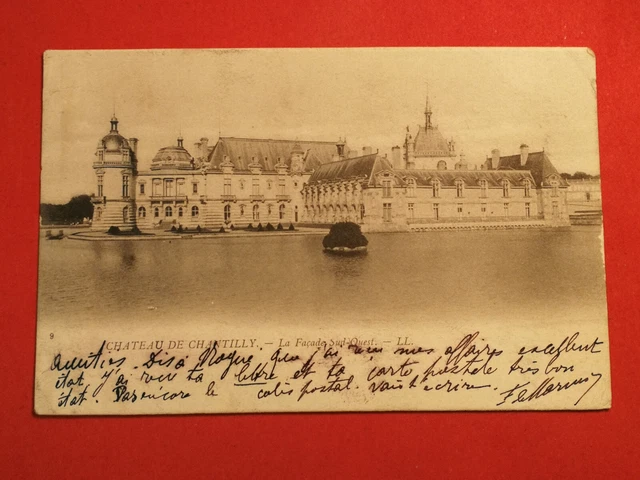 9
CHATEAU DE CHANTILLY. — La Façade Sud-Ouest. — LL.
Amitiés. Dis à que j'ai reçu mes affaires excellent
état. J'ai reçu ta lettre et ta carte postale très bon
état. Pas encore le colis postal. Vais t'écrire.